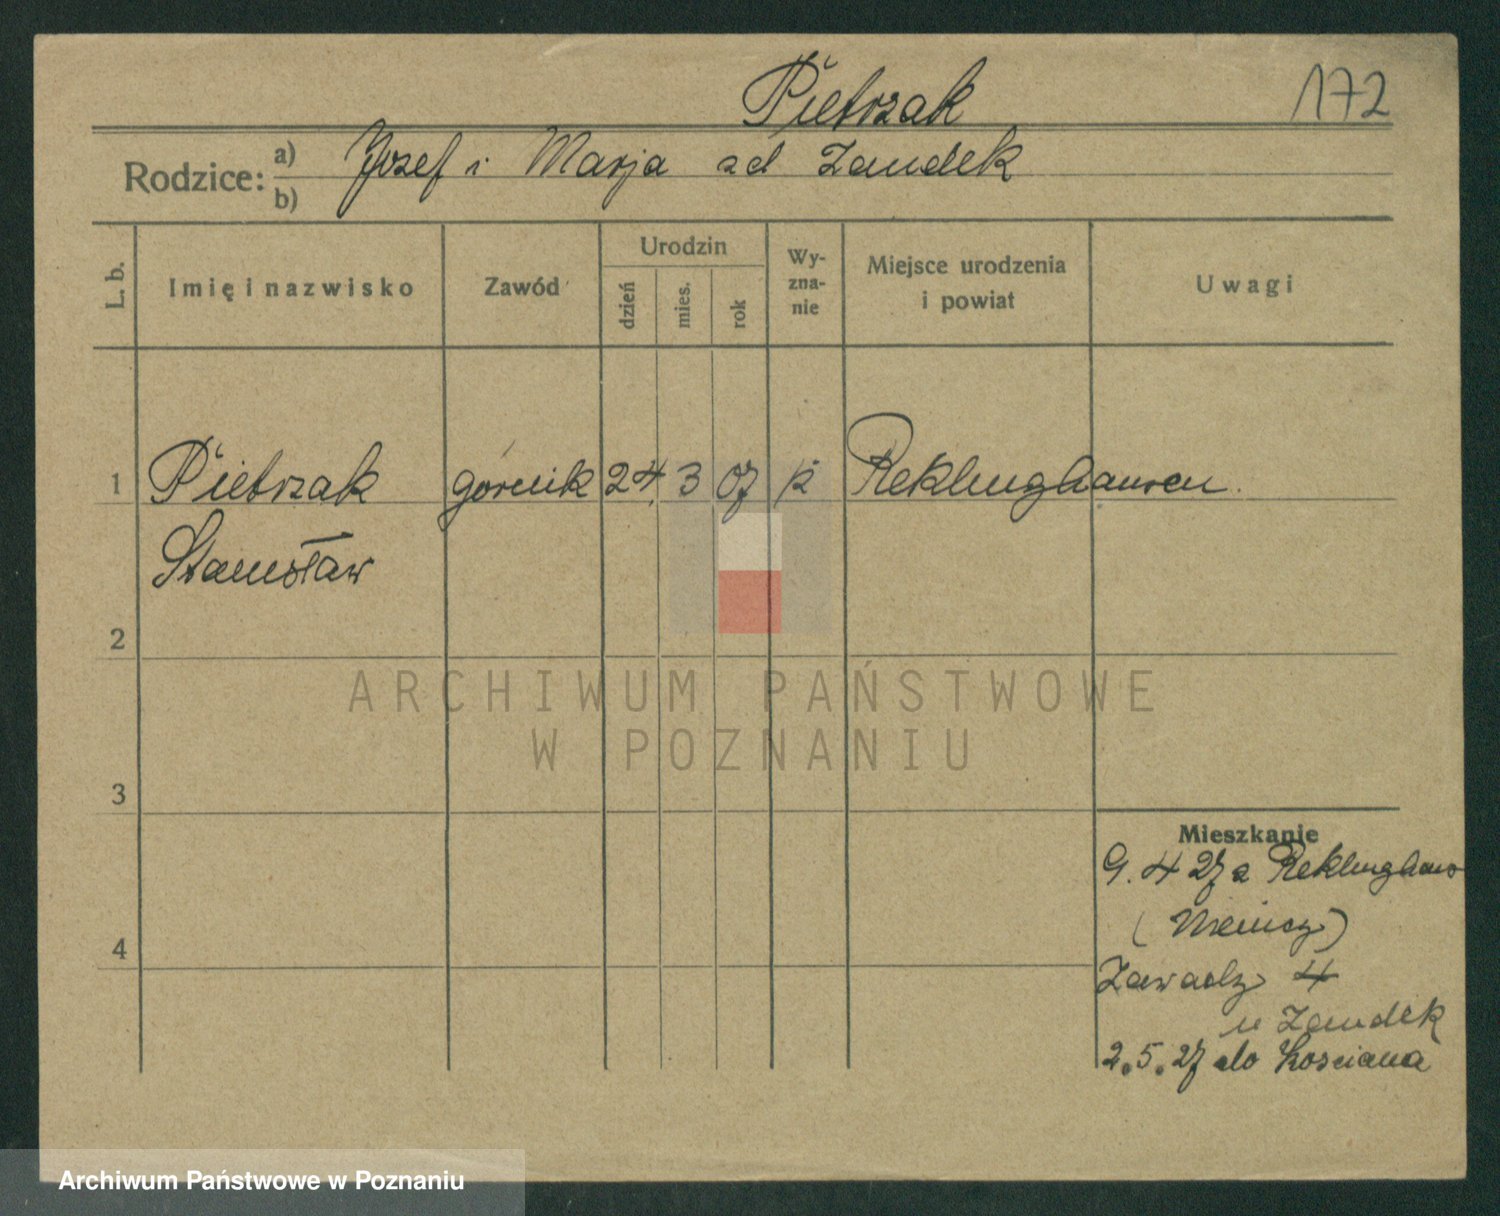 Pietrzak 172
Rodzice: a) Jozef i Marja zd Zandek
b)
L. b. Imię i nazwisko Zawód Urodzin dzień mies. rok Wy-zna-nie Miejsce urodzenia i powiat Uwagi
1 Pietrzak górnik 24. 3 07 k Reklinghausen.
Stanisław
2
ARCHIWUM PAŃSTWOWE
W POZNANIU
3
Mieszkanie
9. 4 27 z Reklinghaus
(Niemcy)
4
Zawady 4
u Zandek
2.5.27 do Kościana
Archiwum Państwowe w Poznaniu